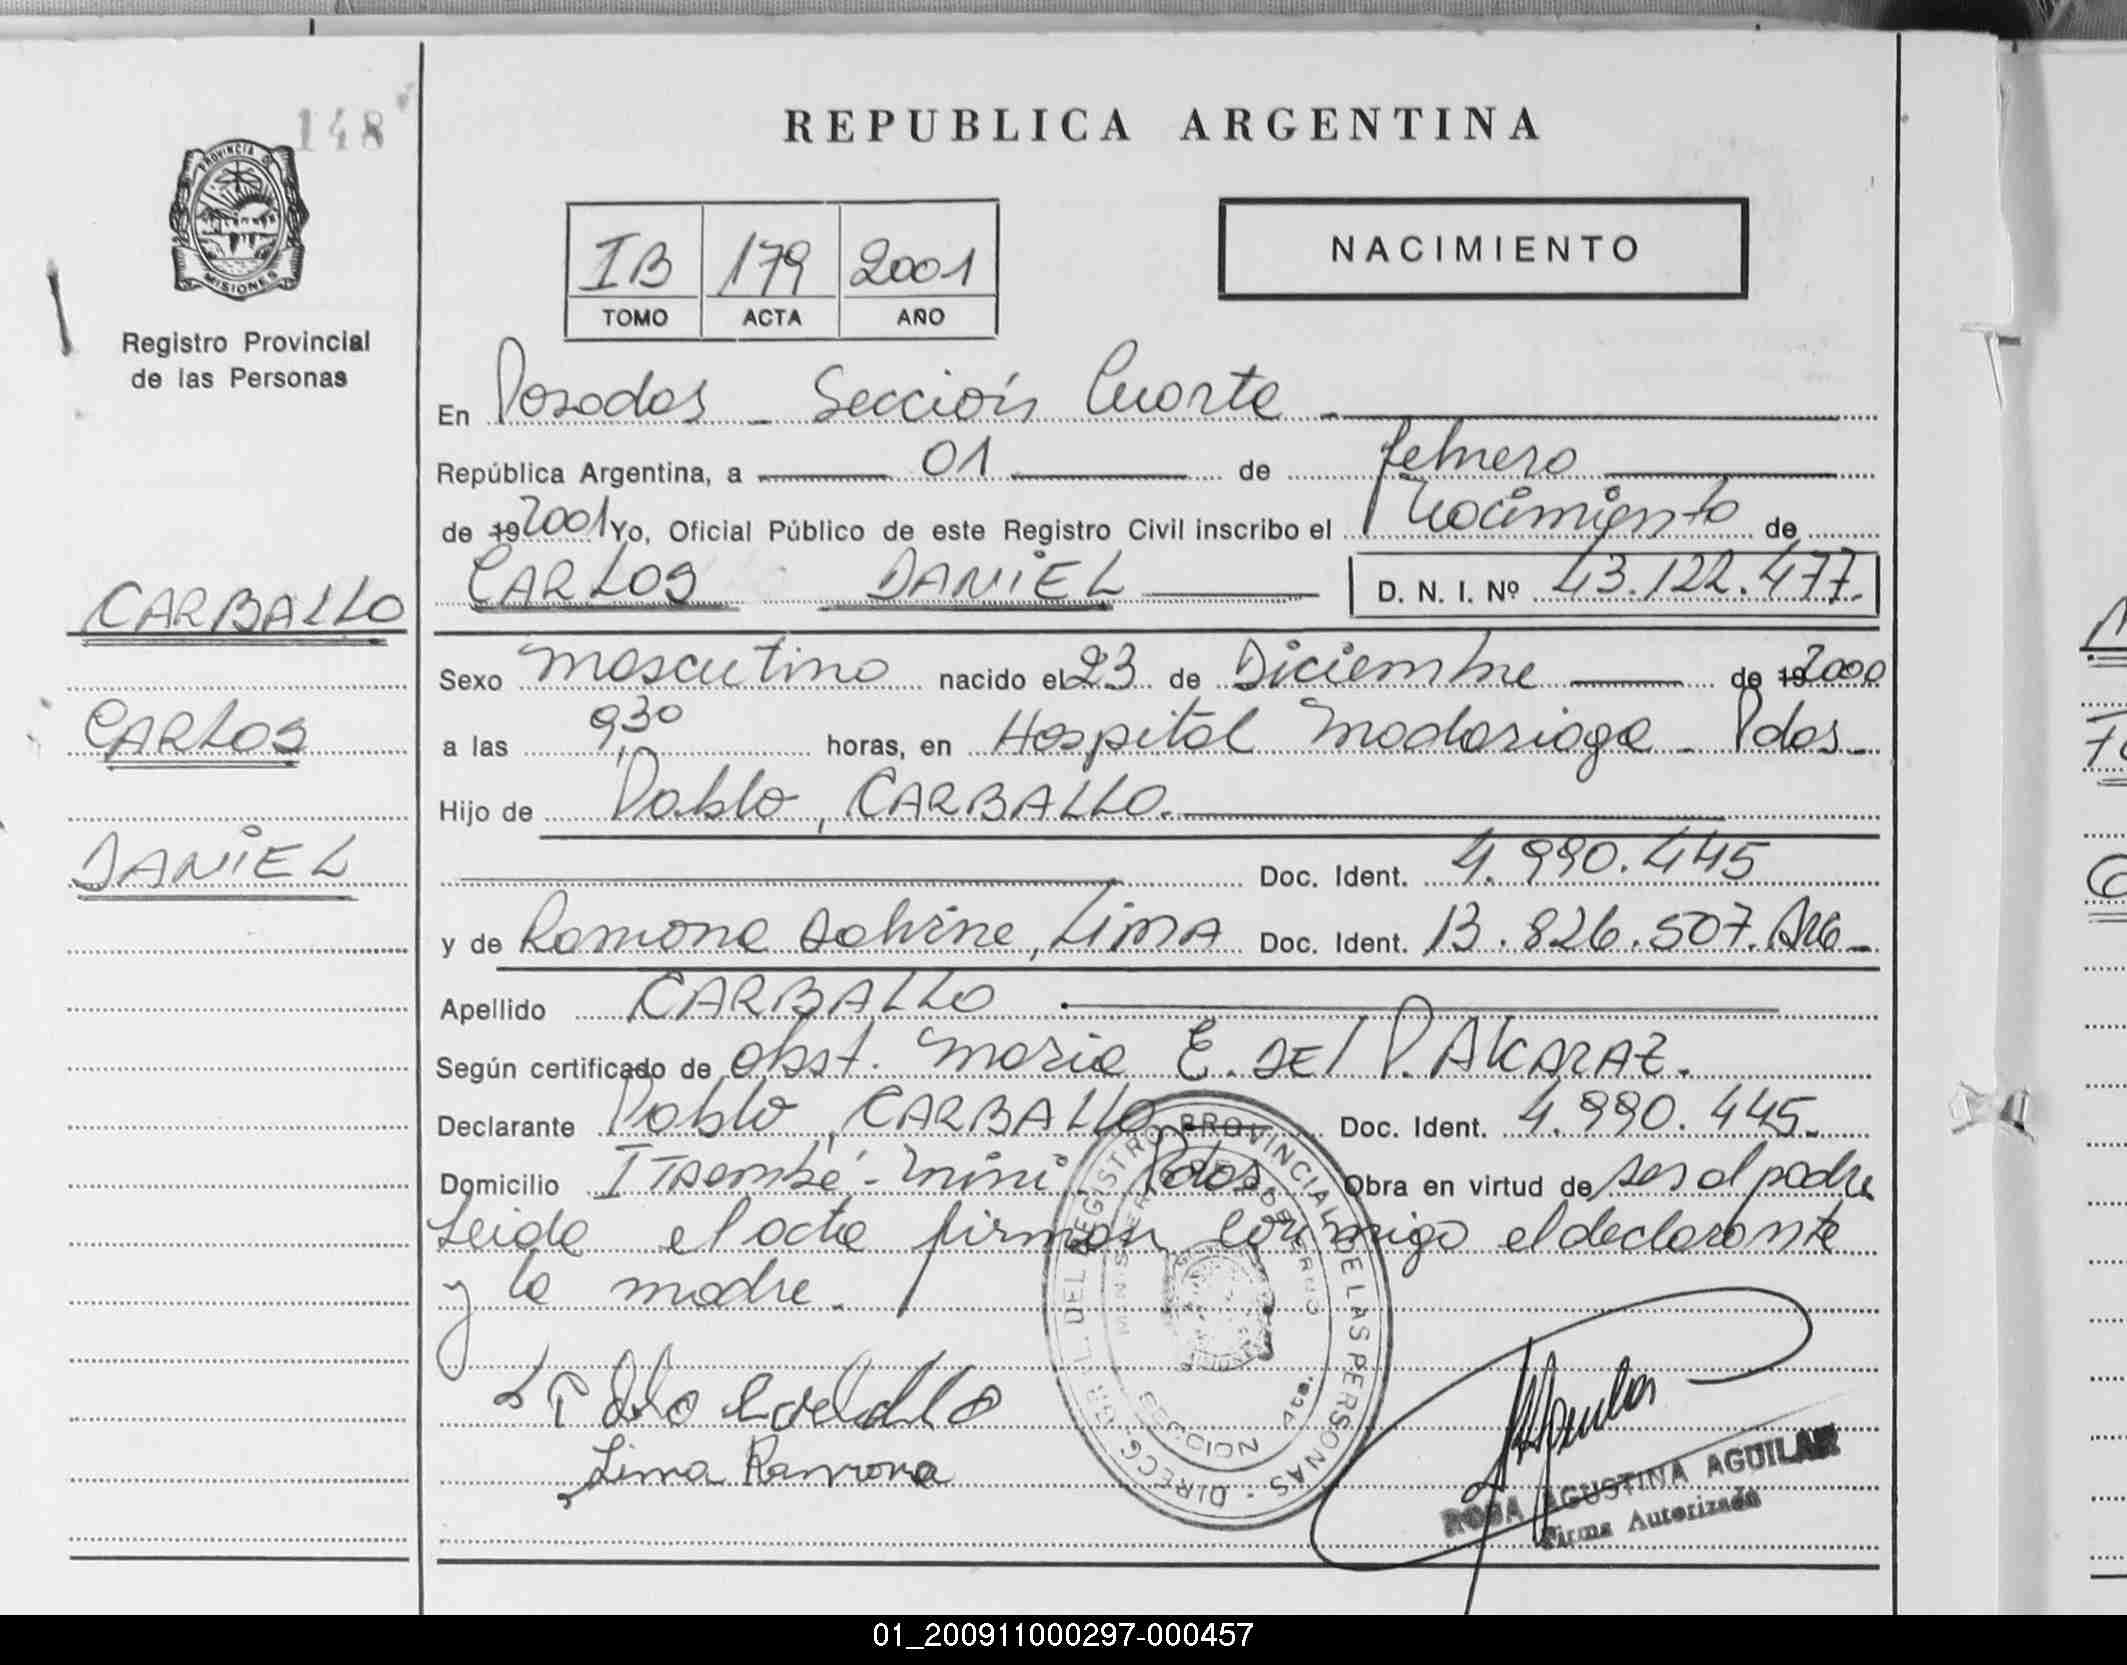 148
REPUBLICA ARGENTINA
PROVINCIA D
MISIONES
Registro Provincial
de las Personas
IB 179 2001
TOMO ACTA AÑO
NACIMIENTO
En Posadas - Sección Cuarta -
República Argentina, a 01 de febrero
de 19 2001 Yo, Oficial Público de este Registro Civil inscribo el Nacimiento de
CARLOS DANIEL D. N. I. Nº 43.122.477.
CARBALLO
CARLOS
DANIEL
Sexo masculino nacido el 23 de Diciembre de 19 2000
a las 9,30 horas, en Hospital Madariaga - Pdas -
Hijo de Pablo, CARBALLO.
Doc. Ident. 4.990.445
y de Ramona Sabina, LIMA Doc. Ident. 13.826.507. ARG -
Apellido CARBALLO
Según certificado de obst. María E. DEL P. ALCARAZ.
Declarante Pablo, CARBALLO Doc. Ident. 4.990.445.
Domicilio ITAembé-miní. Pdas. Obra en virtud de ser el padre
Leida el acta firman conmigo el declarante
y la madre.
DEL REGISTRO PROVINCIAL DE LAS PERSONAS
Lima Ramona
ROSA AGUSTINA AGUILAR
Firma Autorizada
01_200911000297-000457